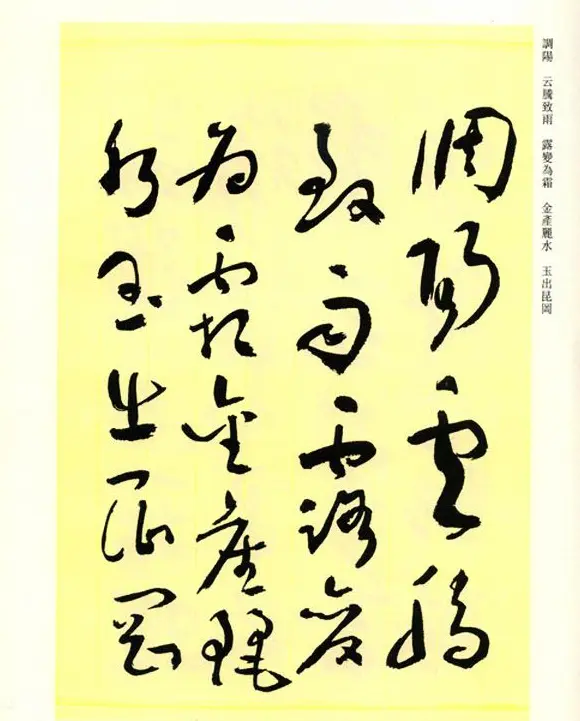 調陽　云騰致雨　露變為霜　金產麗水　玉出昆岡
調陽雲騰
致雨露變
為霜金產麗
水玉出崑岡